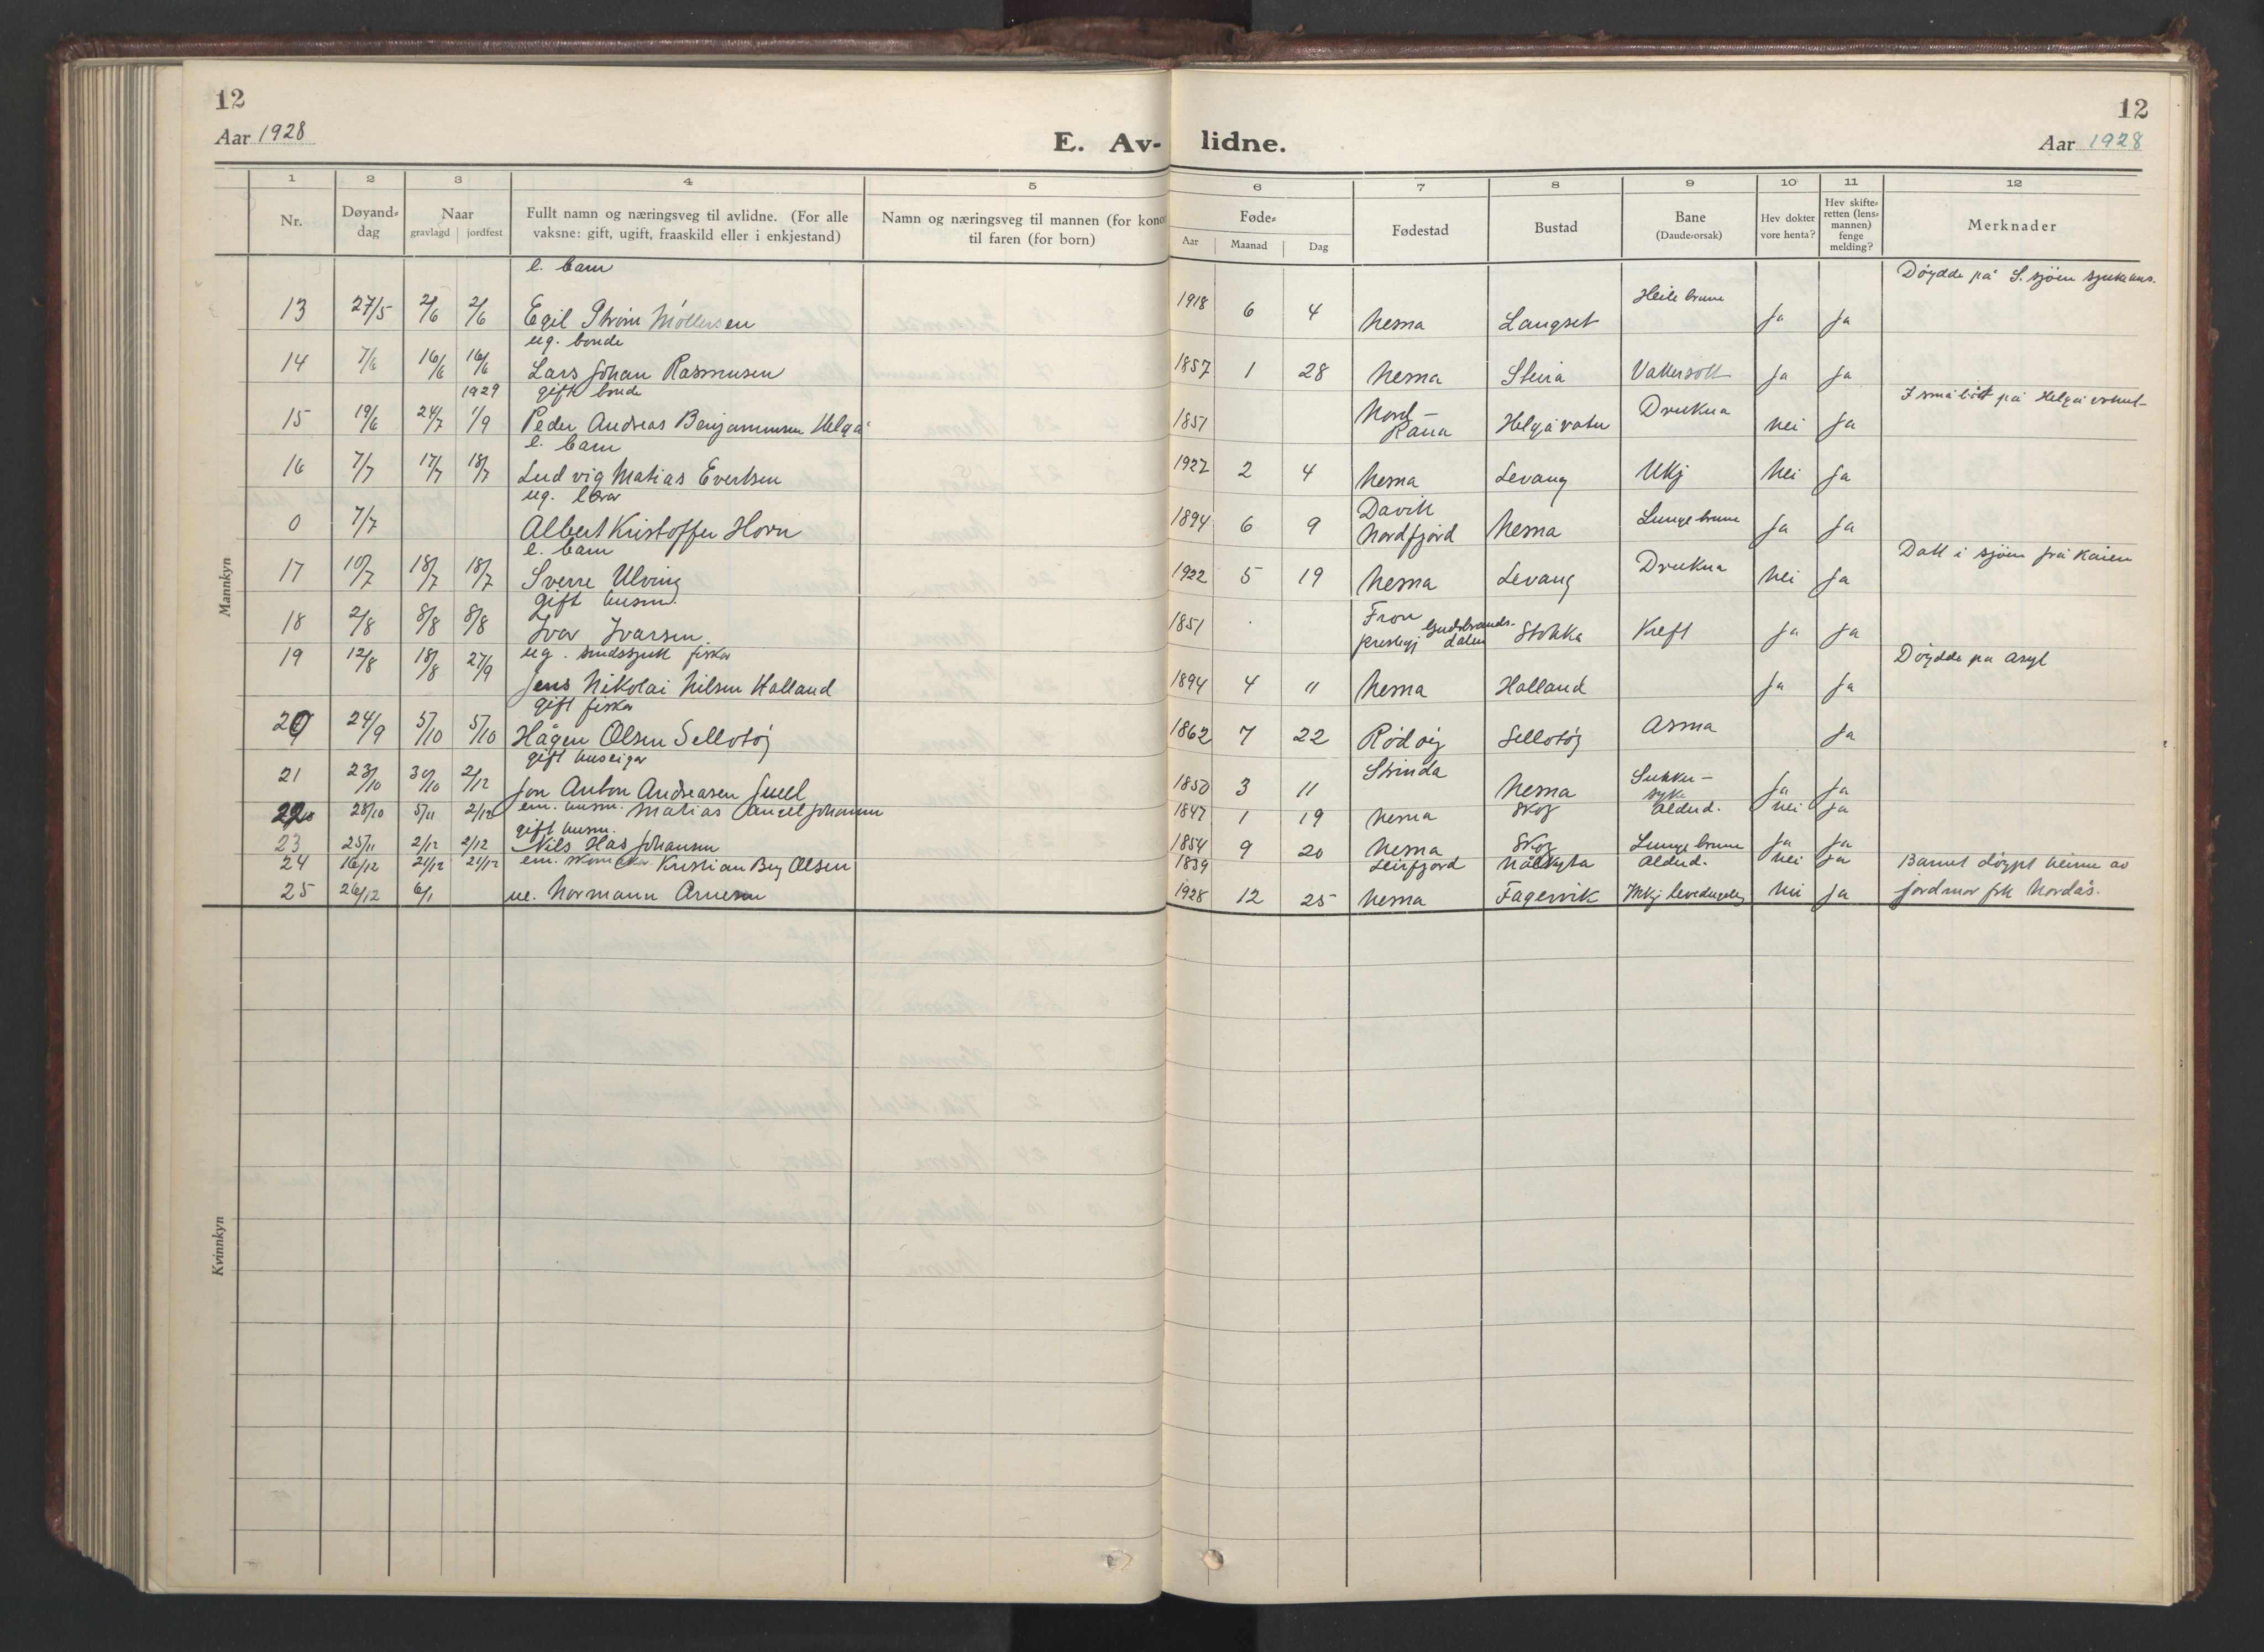 12
12
Aar 1928
E. Av- lidne.
Aar 1928
1 2 3 4 5 6 7 8 9 10 11 12
Nr.
Døyand-
dag
Naar
gravlagd jordfest
Fullt namn og næringsveg til avlidne. (For alle
vaksne: gift, ugift, fraaskild eller i enkjestand)
Namn og næringsveg til mannen (for konor
til faren (for born)
Føde-
Aar Maanad Dag
Fødestad
Bustad
Bane
(Daude-orsak)
Hev dokter
vore henta?
Hev skifte-
retten (lens-
mannen)
fenge
melding?
Merknader
Mannkyn
e. barn Døydde på S. sjöen sjukehus.
13 27/5 2/6 2/6 Egil Strøm Møllersen 1918 6 4 Nesna Langset Heile brune ja ja
ug. bonde
14 7/6 16/6 16/6 Lars Johan Rasmusen 1857 1 28 Nesna Steira Vattersott ja ja
1929 gift bonde I småbåt på Helgåvatnet
15 19/6 24/7 1/9 Peder Andreas Benjaminsen Helgå 1851 Nord-Rana Helgåvatn Drukna nei ja
e. barn
16 7/7 17/7 18/7 Ludvig Matias Evertsen 1927 2 4 Nesna Levang Ukj nei ja
ug. lærar
0 7/7 Albert Kristoffer Horn 1894 6 9 Davik Nordfjord Nesna Lungebrune ja ja
e. barn Datt i sjöen frå kaien
17 10/7 18/7 18/7 Sverre Ulving 1922 5 19 Nesna Levang Drukna nei ja
gift husm.
18 2/8 8/8 8/8 Ivar Ivarsen. 1851 Fron prestegj Gudbrands-dalen Stokka Kreft ja ja
ug. sindssjuk fiskar Døydde på asyl
19 12/8 18/8 27/9 Jens Nikolai Nilsen Halland 1894 4 11 Nesna Halland ja ja
gift fiskar
20 24/9 5/10 5/10 Hågen Olsen Selletøj 1862 7 22 Rødøy Selletøj Asma ja
gift huseigar
21 23/10 30/10 2/12 Jon Anton Andreasen Juell 1850 3 11 Strinda Nesna Sukkersyke ja ja
22 28/10 5/11 2/12 em. husm. Matias Johansen 1847 1 19 Nesna Skog Aldred. nei ja
gift husm.
23 25/11 2/12 2/12 Nils Hås Johansen 1854 9 20 Nesna Skog Lungebrune ja ja
24 16/12 21/12 21/12 em. skomakar Kristian Berg Olsen 1839 Leirfjord Aldred. nei ja Barnet døypt heime av
25 26/12 6/1 ue. Normann Arnesen 1928 12 25 Nesna Fagervik Ikkj levedugeleg nei ja jordmor frk Nordås.
Kvinnkyn